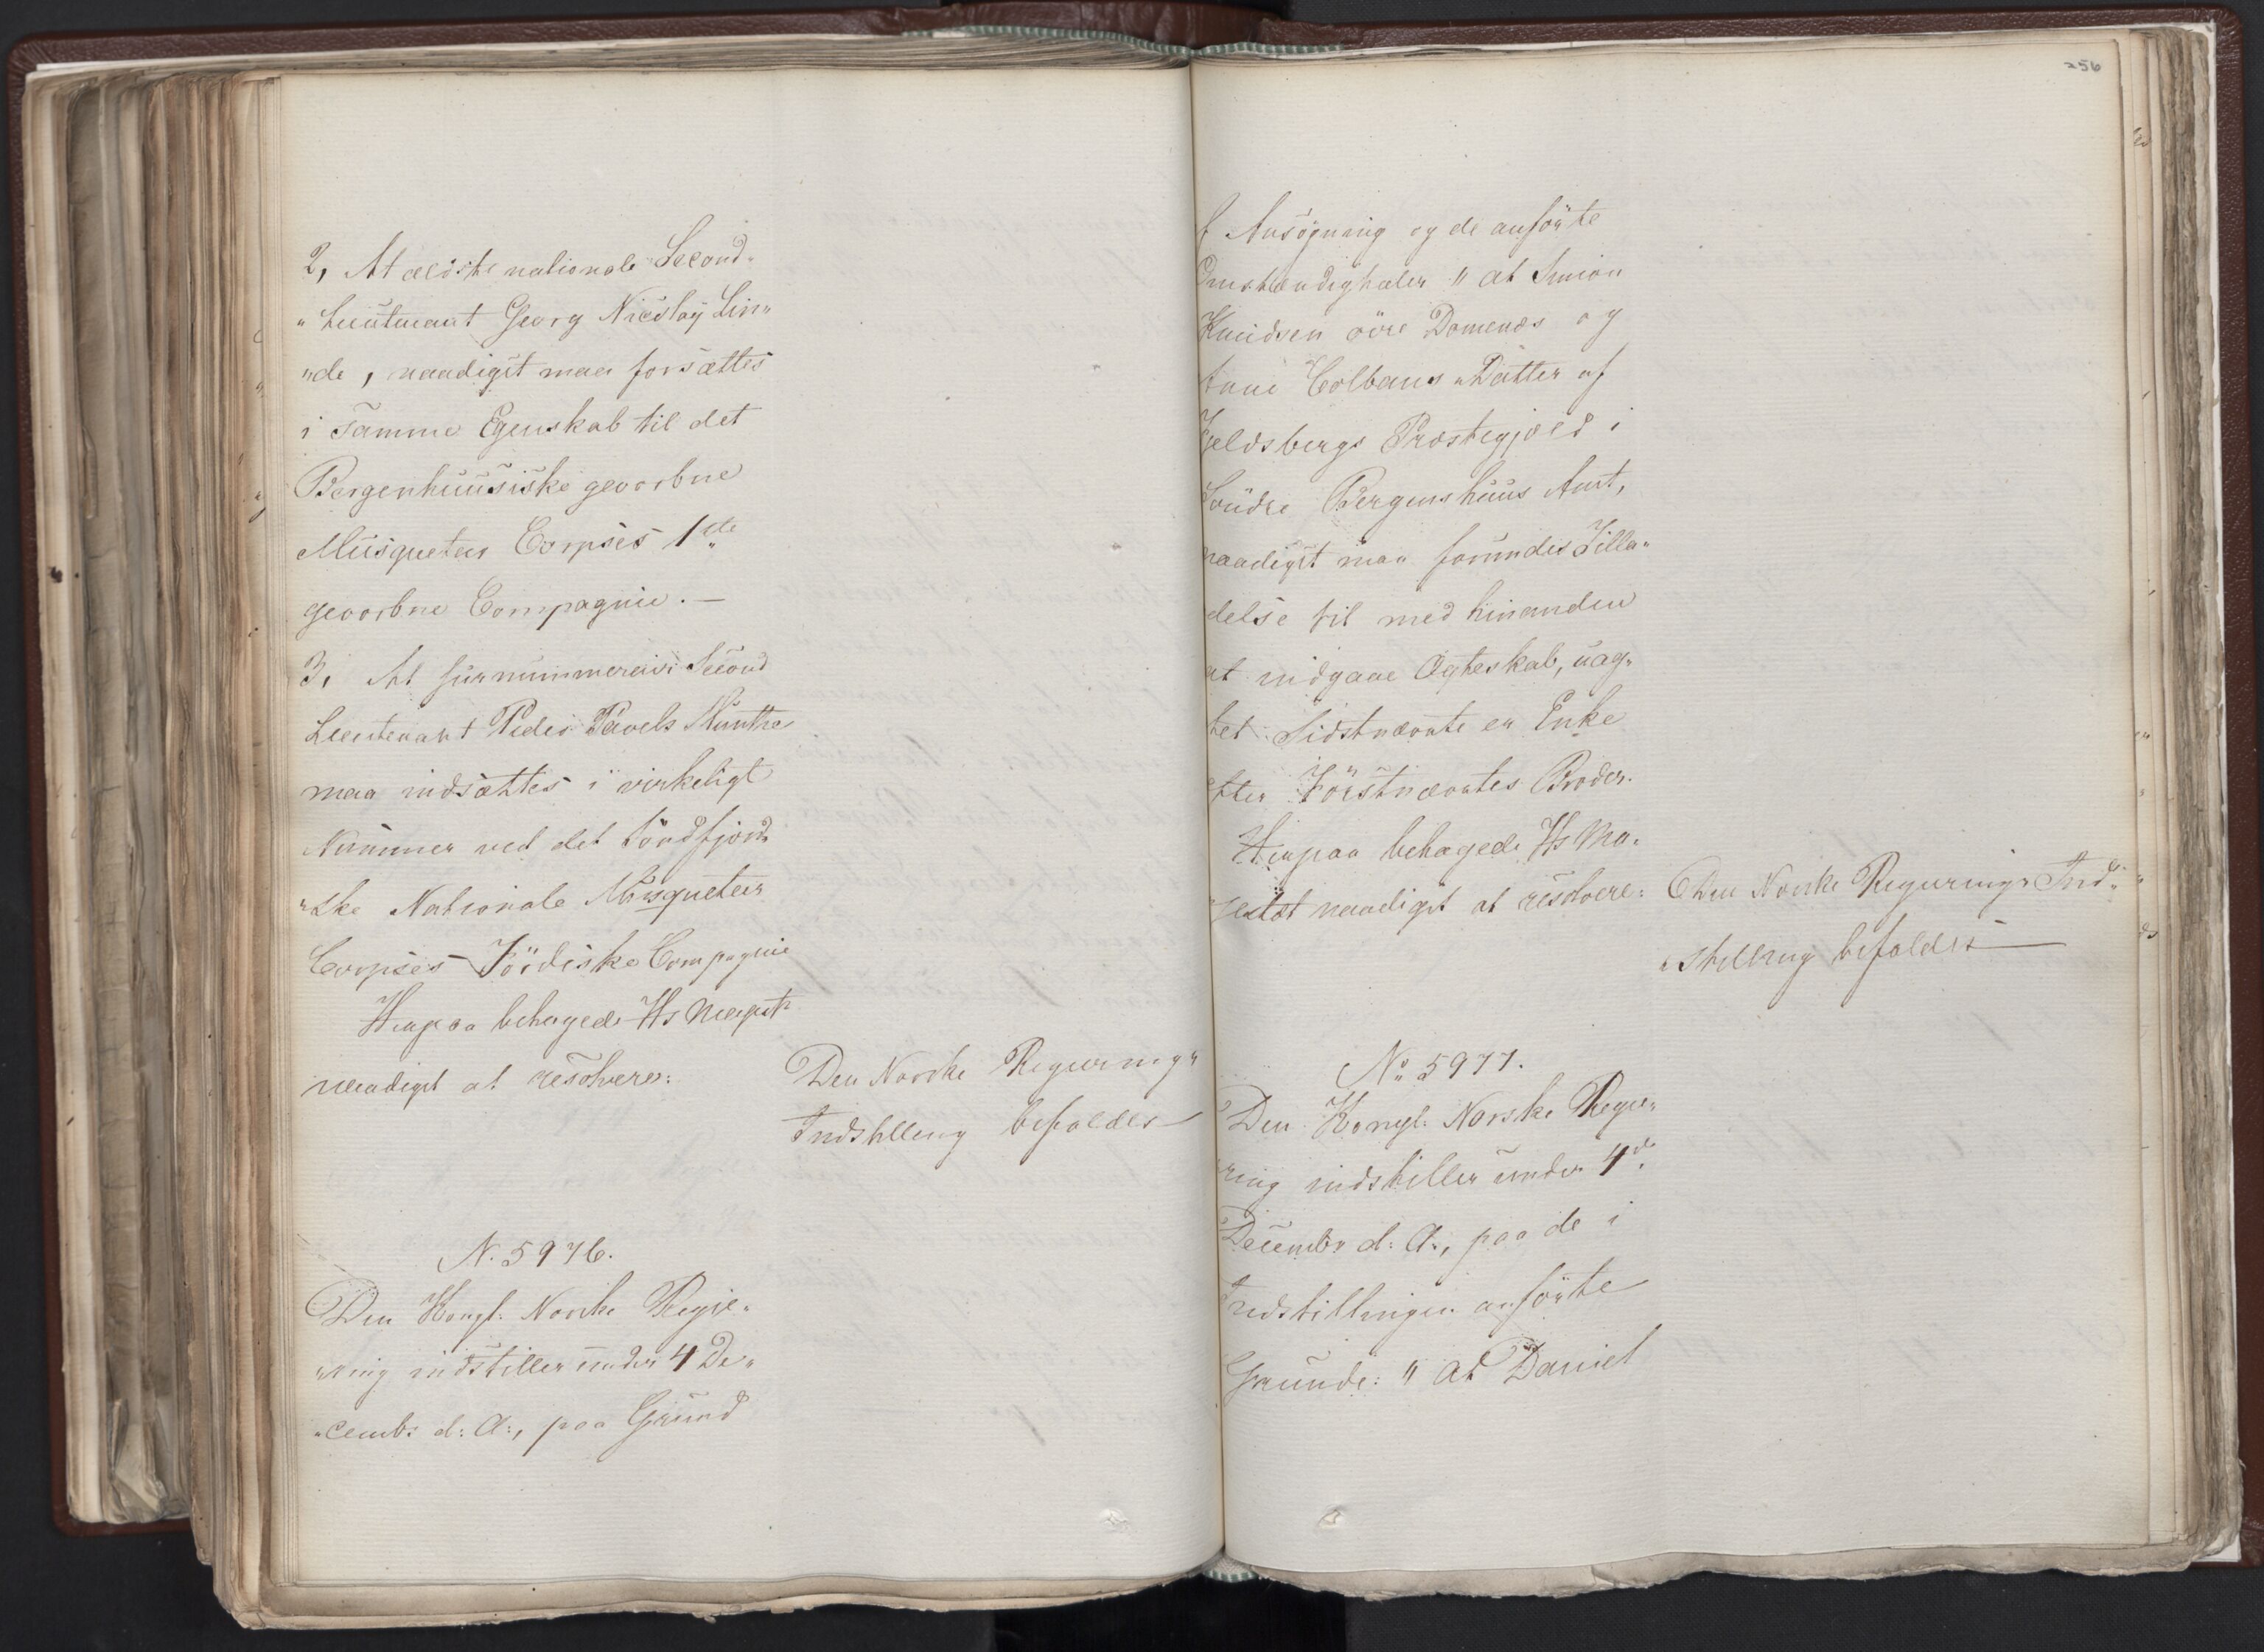 2, At ældste nationale Second-
"Lieutenant Georg Nicolaÿ Lin"
"de, naadigst maa forsættes
i samme Egenskab til det
Bergenhuusiske geworbne
Musqueteer Corpses 1ste
geworbne Compagnie. —
3, At surnummeraire Second
Lieutenant Peder Pavels Munthe
maa indsættes i virkeligt
Nummer ved det Söndfjord
"ske Nationale Musqueteer
Corpses Jördiske Compagnie
Herpaa behagede Hs Majest:
naadigst at resolvere:
Den Norske Regjerings
Indstilling bifaldes
N. 5976.
Den Kongl. Norske Regje"
"ring indstiller under 4 De"
"cembr d: A:, paa Grund
256
f Ansögning og de anförte
Omstændigheder " at Simon
Knudsen övre Domenæs og
Colbans Datter af
Fjeldsbergs Præstegjæld i
Söndre Bergenshuus Amt,
naadigst maa forundes Tilla"
delse til med hinanden
at indgaae Ægteskab, uag"
tet Sidstnævnte er Enke
efter Förstnævntes Broder.
Herpaa behagede Hs Ma"
jestæt naadigst at resolvere:
Den Norske Regjerings Ind"
"stilling bifaldes
No 5977.
Den Kongl. Norske Regje"
ring indstiller under 4de
Decembr d: A:, paa de i
Indstillingen anförte
Grunde: " At Daniel